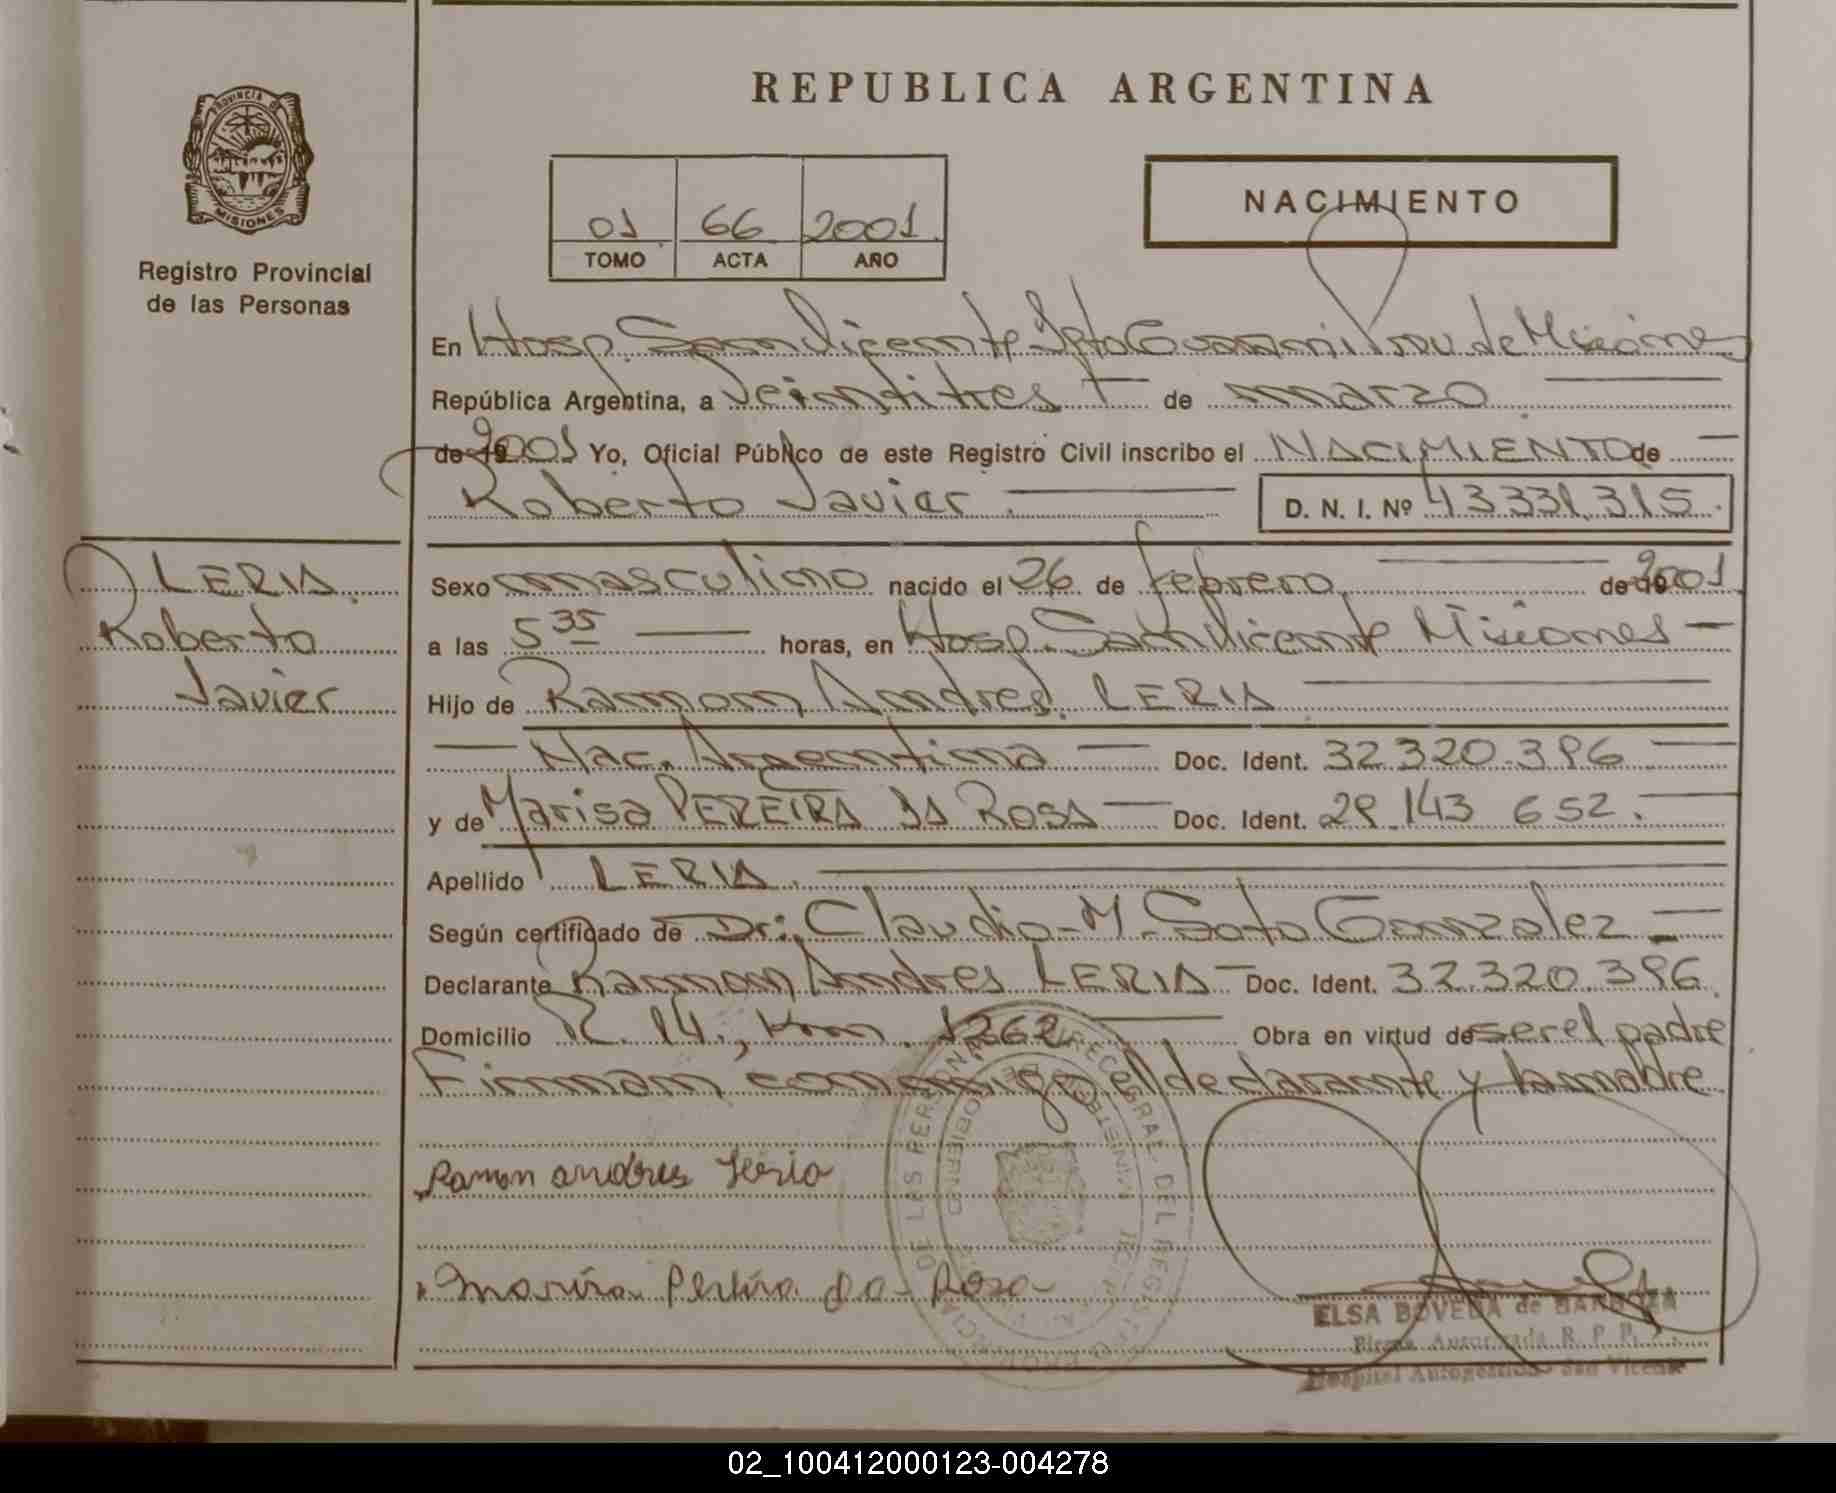 PROVINCIA DE
MISIONES
Registro Provincial
de las Personas
REPUBLICA ARGENTINA
01 66 2001
TOMO ACTA AÑO
NACIMIENTO
En Hosp. San Vicente Dpto Guarani Prov. de Misiones
República Argentina, a Veintitres de marzo
de 19 2001 Yo, Oficial Público de este Registro Civil inscribo el NACIMIENTO de
Roberto Javier D. N. I. Nº 43331.315
LERIA
Roberto
Javier
Sexo masculino nacido el 26 de febrero de 19 2001
a las 5 35 horas, en Hosp. San Vicente Misiones
Hijo de Ramon Andres LERIA
Nac. Argentina Doc. Ident. 32.320.396
y de Marisa PEREIRA DA ROSA Doc. Ident. 29.143 652.
Apellido LERIA
Según certificado de Dr: Claudio M. Soto Gonzalez
Declarante Ramon Andres LERIA Doc. Ident. 32.320.396
Domicilio R. 14, Km. 1262 Obra en virtud de ser el padre
Firman conmigo el declarante y la madre
Ramon andres Leria
Marisa Pereira da Rosa
ELSA BOVEDA de BARBOZA
Firma Autorizada R. P. P.
Hospital Autogestión San Vicente
02_100412000123-004278